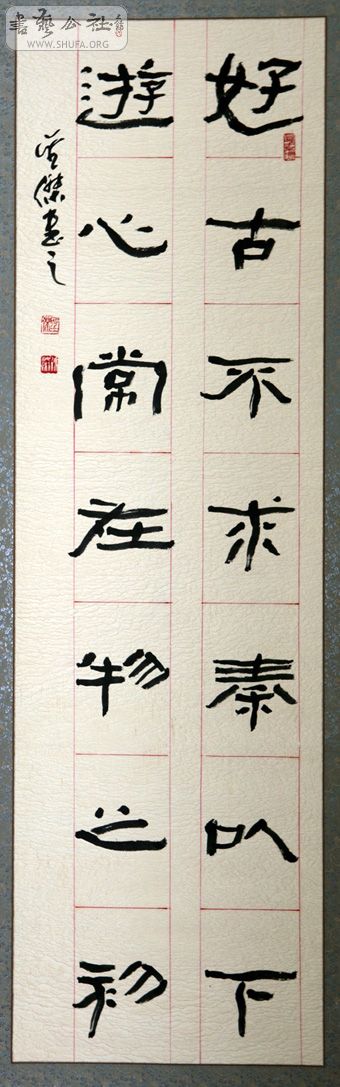 好古不求秦以下
遊心常在物之初
書藝公社
WWW.SHUFA.ORG